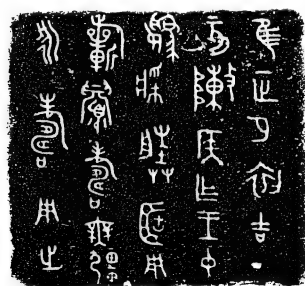 隹正月初吉丁
亥陳侯乍王中
媯媵𠤳用
祈眉壽無疆
永壽用之